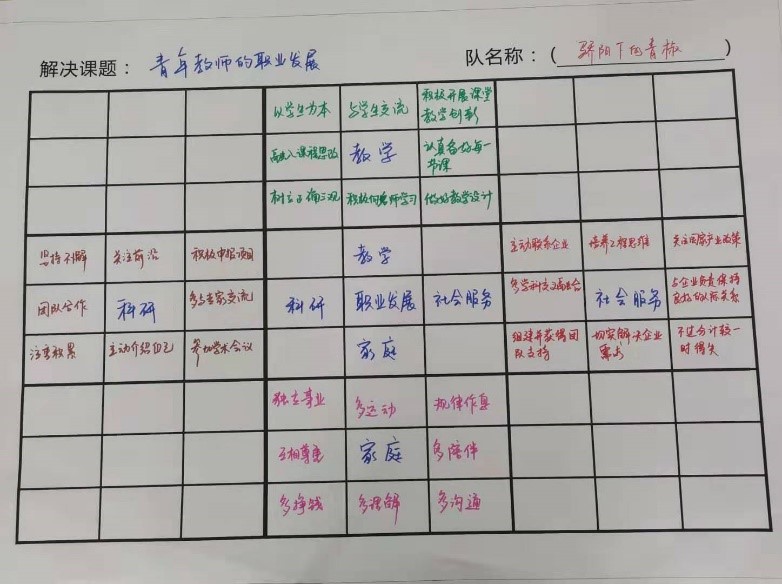 解决课题：青年教师的职业发展
队名称：（骄阳下的青椒）
以学生为本 与学生交流 积极开展课堂
教学创新
融入课程思政 教学 认真备好每一
节课
树立正确三观 积极向老师学习 做好教学设计
坚持不懈 关注前沿 积极申报项目 教学 主动联系企业 培养工程思维 关注国家产业政策
团队合作 科研 多与专家交流 科研 职业发展 社会服务 多学科交叉融合 社会服务 与企业负责保持
良好的人际关系
主动介绍自己 参加学术会议 家庭 组建并获得团
队支持 切实解决企业
不过分计较一
时得失
独立事业 多运动 规律作息
互相尊重 家庭 多陪伴
多挣钱 多理解 多沟通